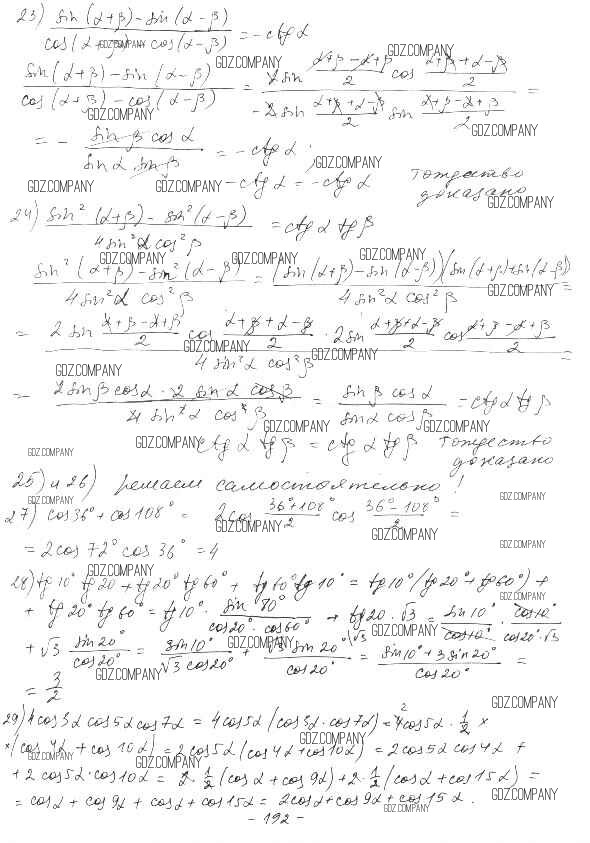 23) (sin(α+β) - sin(α-β)) / (cos(α+β) - cos(α-β)) = -ctg α
(sin(α+β) - sin(α-β)) / (cos(α+β) - cos(α-β)) = (2 sin (α+β-α+β)/2 cos (α+β+α-β)/2) / (-2 sin (α+β+α-β)/2 sin (α+β-α+β)/2) =
= - (sin β cos α) / (sin α sin β) = -ctg α ;
-ctg α = -ctg α тождество
доказано
24) (sin² (α+β) - sin² (α-β)) / (4 sin² α cos² β) = ctg α tg β
(sin² (α+β) - sin² (α-β)) / (4 sin² α cos² β) = ((sin (α+β) - sin (α-β))(sin (α+β) + sin (α-β))) / (4 sin² α cos² β) =
= (2 sin (α+β-α+β)/2 cos (α+β+α-β)/2 · 2 sin (α+β+α-β)/2 cos (α+β-α+β)/2) / (4 sin² α cos² β) =
= (2 sin β cos α · 2 sin α cos β) / (4 sin² α cos² β) = (sin β cos α) / (sin α cos β) = ctg α tg β
ctg α tg β = ctg α tg β тождество
доказано
25) и 26) решаем самостоятельно!
27) cos 36° + cos 108° = 2 cos (36°+108°)/2 cos (36°-108°)/2 =
= 2 cos 72° cos 36° = 4
28) tg 10° tg 20 + tg 20° tg 60° + tg 60° tg 10° = tg 10° (tg 20° + tg 60°) +
+ tg 20° tg 60° = tg 10° · sin 80° / (cos 20° · cos 60°) + tg 20 · √3 = sin 10° · cos 10° / (cos 10° · cos 20° · √3)
+ √3 sin 20° / cos 20° = sin 10° / (√3 cos 20°) + √3 sin 20 · √3 / cos 20° = (sin 10° + 3 sin 20°) / cos 20° =
= 3/2
29) 4 cos 3α cos 5α cos 7α = 4 cos 5α (cos 3α · cos 7α) = 4 cos 5α · 1/2 ×
× (cos 4α + cos 10α) = 2 cos 5α (cos 4α + cos 10α) = 2 cos 5α cos 4α +
+ 2 cos 5α · cos 10α = 2 · 1/2 (cos α + cos 9α) + 2 · 1/2 (cos α + cos 15α) =
= cos α + cos 9α + cos α + cos 15α = 2 cos α + cos 9α + cos 15α .
- 192 -
GDZ.COMPANY